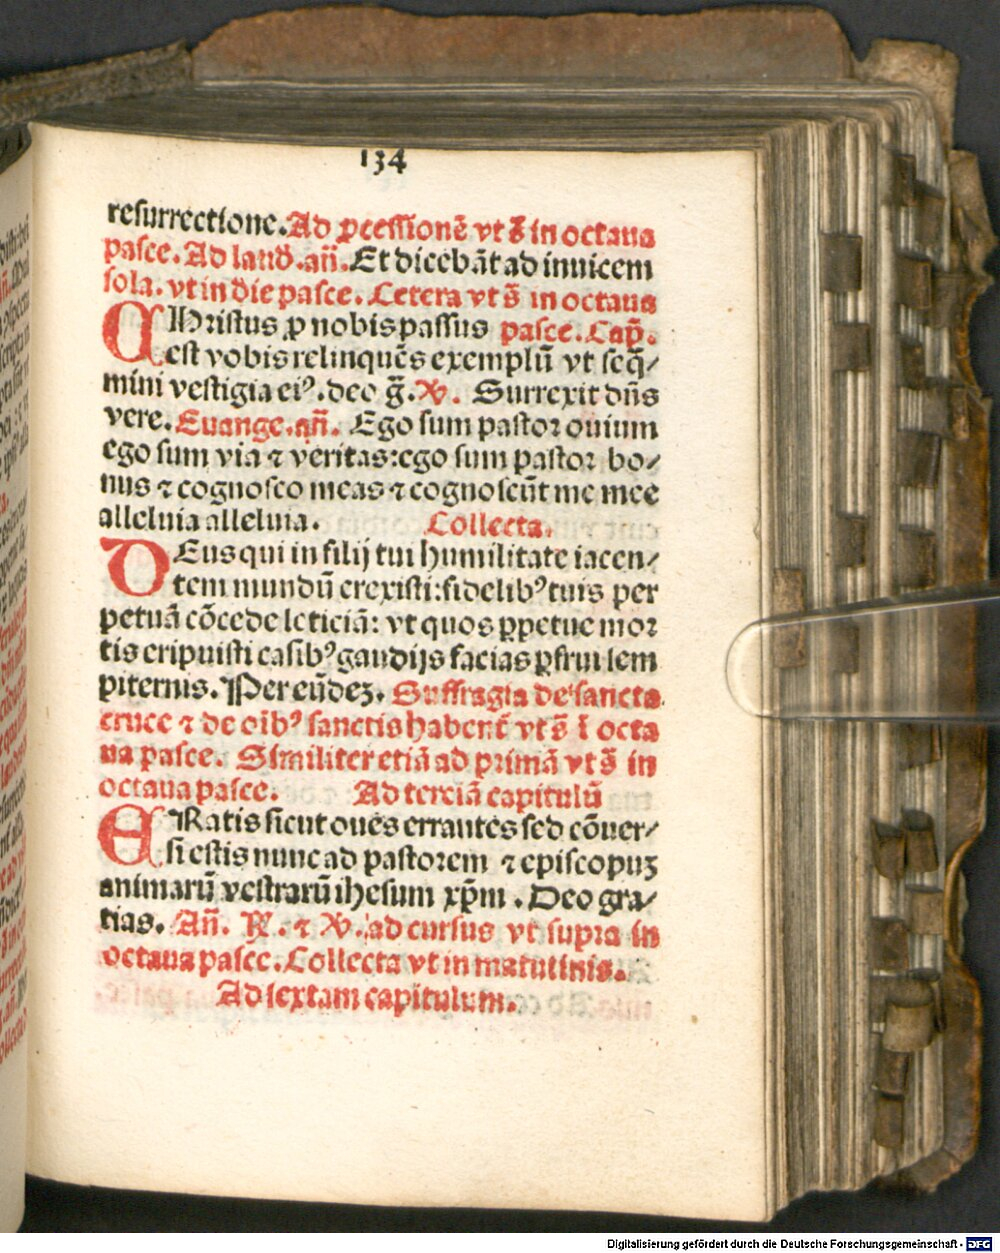 134
resurrectione. Ad ꝓcessionē vt s̄ in octaua
pasce. Ad laud̄. an̄. Et dicebāt ad inuicem
sola. vt in die pasce. Cetera vt s̄ in octaua
CHristus ꝓ nobis passus pasce. Cap̄.
est vobis relinquēs exemplū vt seq̄/
mini vestigia eiꝰ. deo ḡ. ℣. Surrexit dn̄s
vere. Euange. an̄. Ego sum pastor ouium
ego sum via ⁊ veritas: ego sum pastor bo/
nus ⁊ cognosco meas ⁊ cognoscūt me mee
alleluia alleluia. Collecta.
DEus qui in filij tui humilitate iacen/
tem mundū erexisti: fidelibꝰ tuis per
petuā cōcede leticiā: vt quos ꝑpetue mor
tis eripuisti casibꝰ gaudijs facias ꝑfrui sem
piternis. Per eūdeꝫ. Suffragia de sancta
cruce ⁊ de oībꝰ sanctis habent̄ vt s̄ ī octa
ua pasce. Similiter etiā ad primā vt s̄ in
octaua pasce. Ad terciā capitulū
ERatis sicut oues errantes sed cōuer/
si estis nunc ad pastorem ⁊ episcopuꝫ
animarū vestrarū ihesum xp̄m. Deo gra/
tias. An̄. ℟. ⁊ ℣. ad cursus vt supra in
octaua pasce. Collecta vt in matutinis.
Ad sextam capitulum.
Digitalisierung gefördert durch die Deutsche Forschungsgemeinschaft - DFG